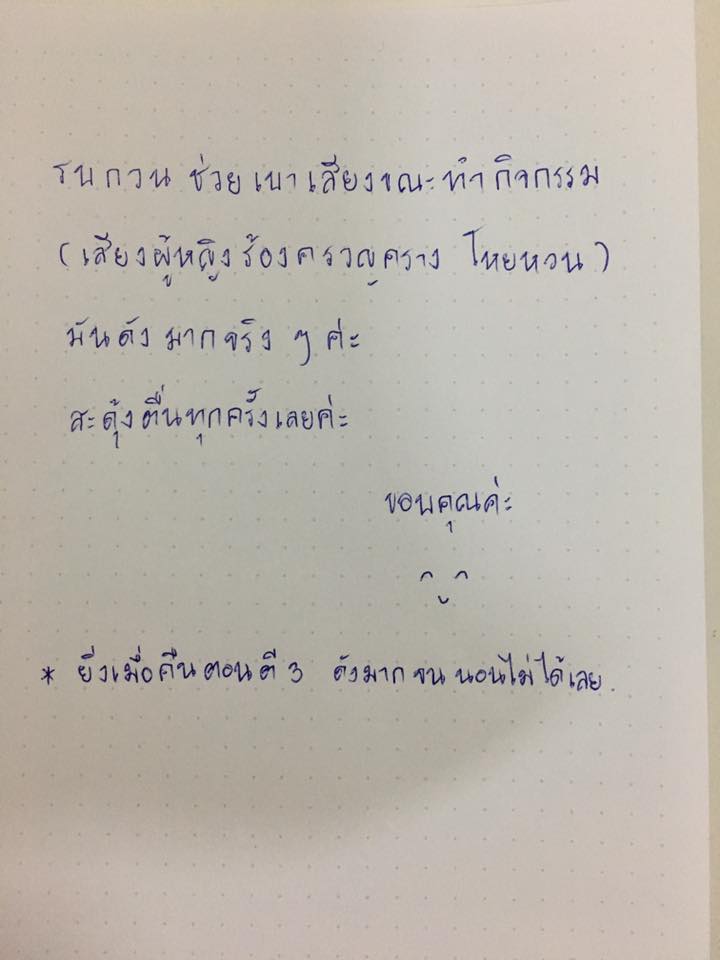 รบกวน ช่วยเบาเสียงขณะทำกิจกรรม
(เสียงผู้หญิงร้องครวญคราง โหยหวน)
มันดังมากจริง ๆ ค่ะ
สะดุ้งตื่นทุกครั้งเลยค่ะ
ขอบคุณค่ะ
* ยิ่งเมื่อคืนตอนตี 3 ดังมากจนนอนไม่ได้เลย.